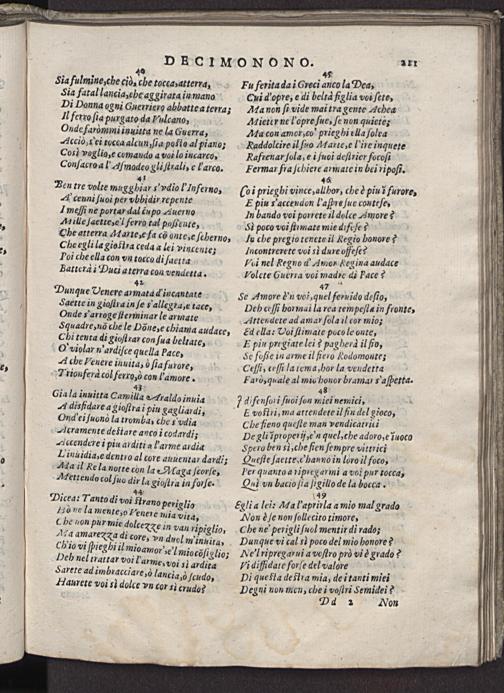 DECIMONONO. 211
40
Sia fulmine, che ciò, che tocca, atterra,
Sia fatal lancia, che aggirata in mano
Di Donna ogni Guerriero abbatte a terra;
Il ferro sia purgato da Vulcano,
Onde farommi inuitta ne la Guerra,
Acciò, s'ei tocca alcun, sia posto al piano;
Così voglio, e comando a voi lo incarco,
Consacro a l'Asmodeo gli strali, e l'arco.
41
Ben tre volte mugghiar s'vdio l'Inferno,
A' cenni suoi per vbbidir repente
I messi ne portar dal cupo Auerno
Mille saette, e'l ferro tal possente,
Che atterra Marte, e fa cō onte, e scherno,
Che egli la giostra ceda a lei vincente;
Poi che ella con vn tocco di saetta
Batterà i Duci a terra con vendetta.
42
Dunque Venere armata d'incantate
Saette in giostra in se s'allegra, e tace,
Onde s'arroge sterminar le armate
Squadre, nō che le Dōne, e chiama audace,
Chi tenta di giostrar con sua beltate,
O' violar n'ardisce quella Pace,
A che Venere inuita, ò sia furore,
Trionferà col ferro, ò con l'amore.
43
Gia la inuitta Camilla Araldo inuia
A disfidare a giostra i piu gagliardi,
Ond'ei suonò la tromba, che s'vdia
Acramente destare anco i codardi;
Accendere i piu arditi a l'arme ardia
L'inuidia, e dentro al core auuentar dardi;
Ma il Re la notte con la Maga scorse,
Mettendo col suo dir la giostra in forse.
44
Dicea: Tanto di voi strano periglio
Hò ne la mente, o Venere mia vita,
Che non pur mie dolcezze in van ripiglio,
Ma amarezza di core, vn duol m'inuita,
Ch'io vi spieghi il mio amor, e'l mio cōsiglio;
Deh nel trattar voi l'arme, voi sì ardita
Sarete ad imbracciare, ò lancia, ò scudo,
Haurete voi sì dolce vn cor sì crudo?
45
Fu ferita da i Greci anco la Dea,
Cui d'opre, e di beltà figlia voi sete,
Ma non si vide mai tra gente Achea
Mieter ne l'opre sue, se non quiete;
Ma con amor, co' prieghi ella solea
Raddolcire il suo Marte, e l'ire inquete
Rafrenar sola, e i suoi destrier focosi
Fermar fra schiere armate in bei riposi.
46
Co i prieghi vince, allhor, che è piu 'l furore,
E piu s'accendon l'aspre sue contese,
In bando voi porrete il dolce Amore?
Sì poco voi stimate mie difese?
In che pregio tenete il Regio honore?
Incontrerete voi sì dure offese?
Voi nel Regno d'Amor Regina audace
Volete Guerra voi madre di Pace?
47
Se Amore è'n voi, quel feruido desio,
Deh cessi hormai la rea tempesta in fronte,
Attendete ad amar sola il cor mio;
Ed ella: Voi stimate poco le onte,
E piu pregiate lei? pagherà il fio,
Se fosse in arme il fiero Rodomonte;
Cessi, cessi la tema, hor la vendetta
Farò, quale al mio honor bramar s'aspetta.
48
I difensori suoi son miei nemici,
E vostri, ma attendete il fin del gioco,
Che fieno queste man vendicatrici
De gli improperij, e'n quel, che adoro, e inuoco
Spero ben sì, che sien sempre vittrici
Queste saette, c'hanno in loro il foco,
Per quanto a ripregarmi a voi pur tocca,
Qui vn bacio sia sigillo de la bocca.
49
Egli a lei: Ma l'aprirla a mio mal grado
Non è se non sollecito timore,
Che ne' perigli suol mentir di rado;
Dunque vi cal sì poco del mio honore?
Ne'l ripregarui a vostro prò vi è grado?
Vi diffidate forse del valore
Di questa destra mia, de i tanti miei
Degni non men, che i vostri Semidei?
Dd 2 Non